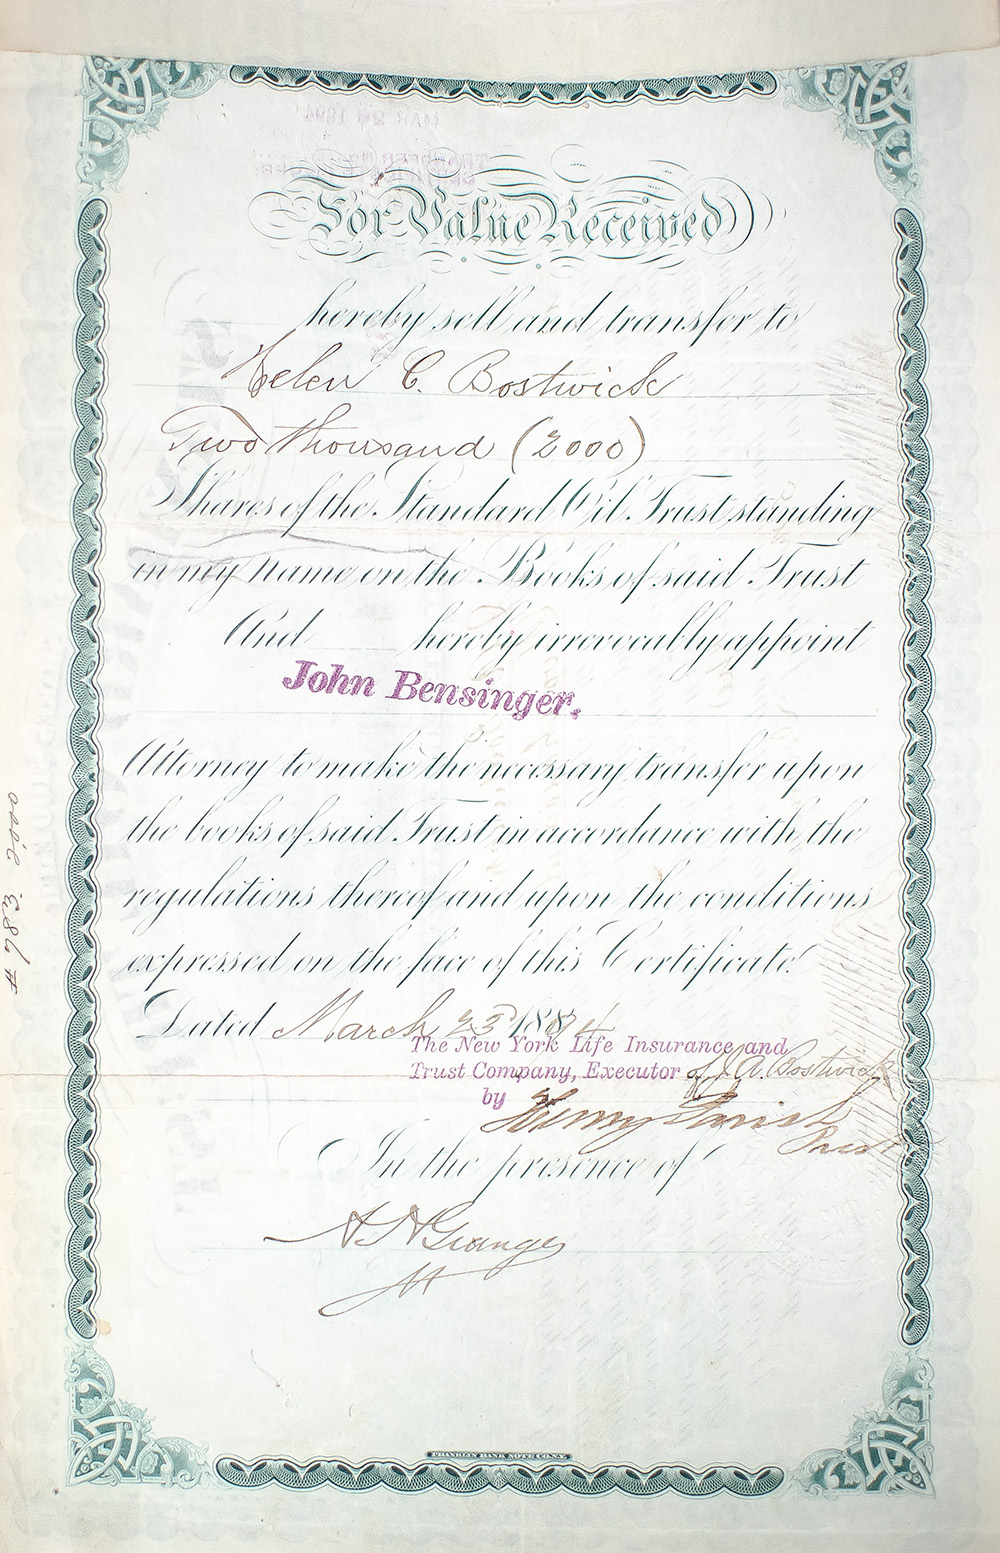 For Value Received
hereby sell and transfer to
Helen C. Bostwick
Two thousand (2000)
Shares of the Standard Oil Trust standing
in my name on the Books of said Trust
And hereby irrevocably appoint
John Bensinger.
Attorney to make the necessary transfer upon
the books of said Trust in accordance with the
regulations thereof and upon the conditions
expressed on the face of this Certificate.
Dated March 23d 1894
The New York Life Insurance and
Trust Company, Executor of J. A. Bostwick
by Henry Parish
Prest
In the presence of
FRANKLIN BANK NOTE CO. N.Y.
# 783 2000